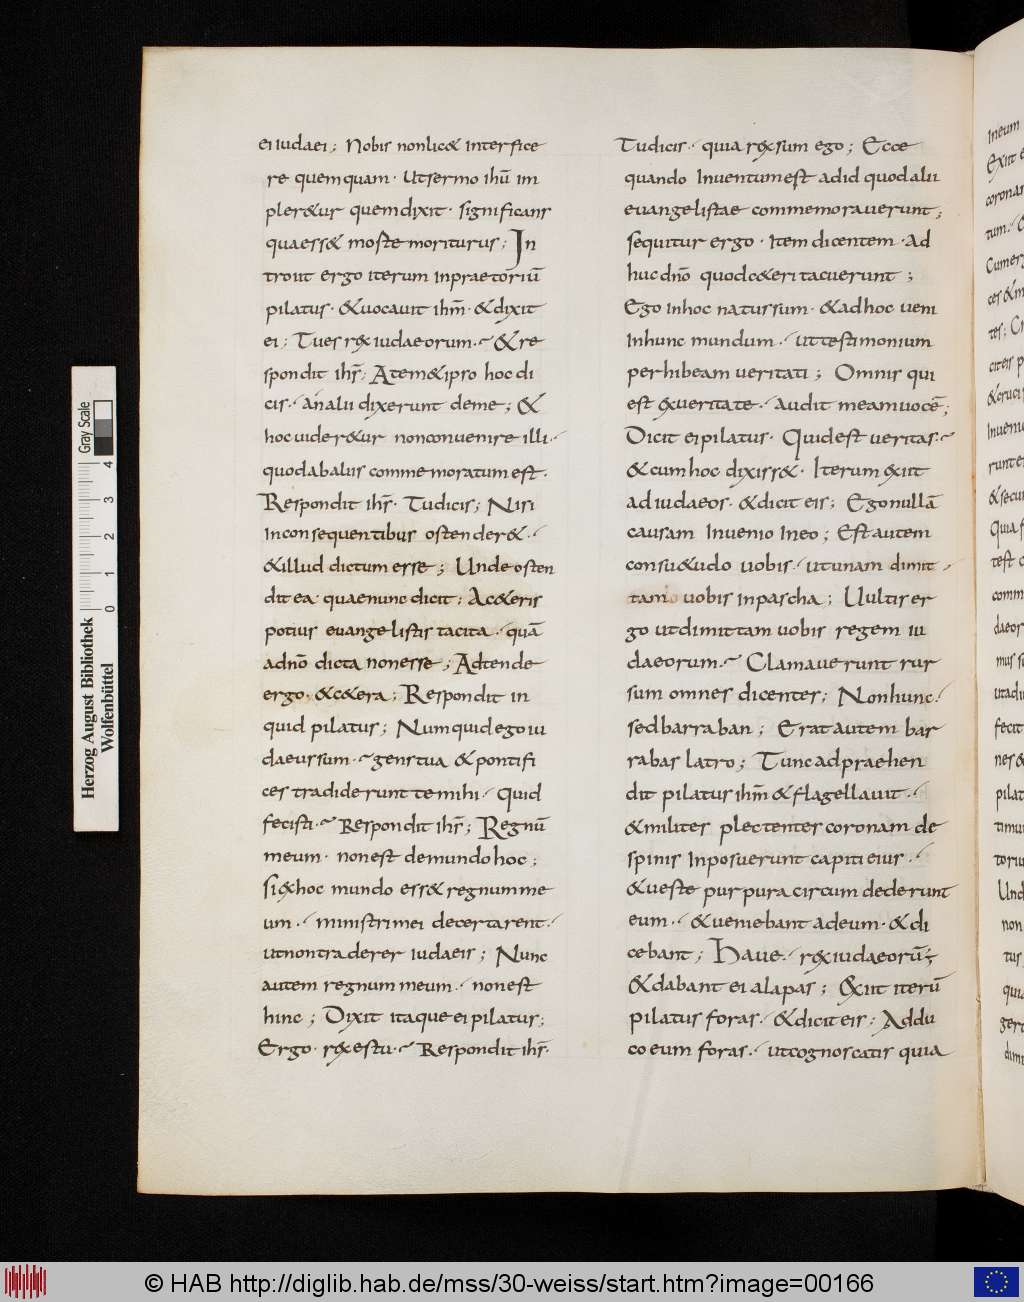 ei iudaei; Nobis non lic& interfice
re quemquam. Ut sermo ihū im
pler&ur quem dixit. significans
qua ess& morte moriturus; In
troiit ergo iterum in praetoriū
pilatus. & vocavit ihm̄. & dixit
ei; Tu es rex iudaeorum. & re
spondit ihs̄; A tem&ipso hoc di
cis. an alii dixerunt de me; &
hoc vider&ur non convenire illi.
quod ab aliis commemoratum est.
Respondit ihs̄. Tu dicis; Nisi
in consequentibus ostender&.
& illud dictum esse; Unde osten
dit ea quae nunc dicit; Ac&eris
potius evangelistis tacita. quā
a dnō dicta non esse; Adtende
ergo. & c&era; Respondit in
quid pilatus; Numquid ego iu
daeus sum. gens tua & pontifi
ces tradiderunt te mihi. Quid
fecisti. Respondit ihs̄; Regnū
meum. non est de mundo hoc;
Si ex hoc mundo ess& regnum me
um. ministri mei decertarent.
ut non traderer iudaeis; Nunc
autem regnum meum. non est
hinc; Dixit itaque ei pilatus;
Ergo. rex es tu. Respondit ihs̄.
Tu dicis. quia rex sum ego; Ecce
quando Inventum est ad id quod alii
evangelistae commemoraverunt;
sequitur ergo. Item dicentem. Ad
huc dnō quod c&eri tacuerunt;
Ego in hoc natus sum. & ad hoc veni
In hunc mundum. ut testimonium
perhibeam veritati; Omnis qui
est ex veritate. audit meam vocē;
Dicit ei pilatus. Quid est veritas.
& cum hoc dixiss&. Iterum exiit
ad iudaeos. & dicit eis; Ego nullā
causam Invenio In eo; Est autem
consu&udo vobis. ut unam dimit
tam vobis in pascha; Vultis er
go ut dimittam vobis regem iu
daeorum. Clamaverunt rur
sum omnes dicentes; Non hunc.
sed barraban; Erat autem bar
rabas latro; Tunc adpraehen
dit pilatus ihm̄ & flagellavit.
& milites plectentes coronam de
spinis Inposuerunt capiti eius.
& veste purpura circumdederunt
eum. & veniebant ad eum. & di
cebant; Have. rex iudaeorū;
& dabant ei alapas; Exiit iterū
pilatus foras. & dicit eis; Addu
co eum foras. ut cognoscatis quia
Herzog August Bibliothek
Wolfenbüttel
0 1 2 3 4
Gray Scale
© HAB http://diglib.hab.de/mss/30-weiss/start.htm?image=00166